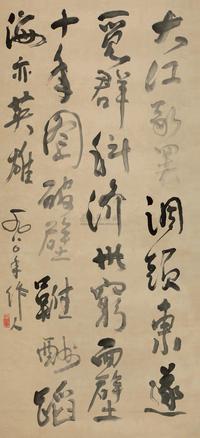 大江歌罷調頭東邃
覓群科濟世窮面壁
十年圖破壁難酬蹈
海亦英雄
一九八〇年作人